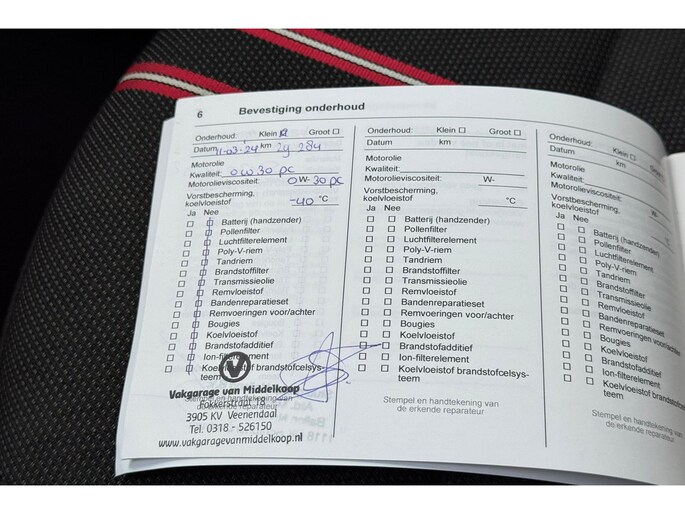 6 Bevestiging onderhoud
Onderhoud: Klein Groot
Datum 11-03-24 km 29 284
Motorolie
Kwaliteit: 0W30 PC
Motorolieviscositeit: 0 W- 30 PC
Vorstbescherming,
koelvloeistof -40 °C
Ja Nee
Batterij (handzender)
Pollenfilter
Luchtfilterelement
Poly-V-riem
Tandriem
Brandstoffilter
Transmissieolie
Remvloeistof
Bandenreparatieset
Remvoeringen voor/achter
Bougies
Koelvloeistof
Brandstofadditief
Ion-filterelement
Koelvloeistof brandstofcelsys-
teem
Stempel en handtekening van
de erkende reparateur
Vakgarage van Middelkoop
Fokkerstraat 18
3905 KV Veenendaal
Tel. 0318 - 526150
www.vakgaragevanmiddelkoop.nl
Onderhoud: Klein Groot
Datum km
Motorolie
Kwaliteit:
Motorolieviscositeit: W-
Vorstbescherming,
koelvloeistof °C
Ja Nee
Batterij (handzender)
Pollenfilter
Luchtfilterelement
Poly-V-riem
Tandriem
Brandstoffilter
Transmissieolie
Remvloeistof
Bandenreparatieset
Remvoeringen voor/achter
Bougies
Koelvloeistof
Brandstofadditief
Ion-filterelement
Koelvloeistof brandstofcelsys-
teem
Stempel en handtekening van
de erkende reparateur
Onderhoud: Klein
Datum km
Motorolie
Kwaliteit:
Motorolieviscositeit: W-
Vorstbescherming,
koelvloeistof °C
Ja Nee
Batterij (handzender)
Pollenfilter
Luchtfilterelement
Poly-V-riem
Tandriem
Brandstoffilter
Transmissieolie
Remvloeistof
Bandenreparatieset
Remvoeringen voor/achter
Bougies
Koelvloeistof
Brandstofadditief
Ion-filterelement
Koelvloeistof brandstofcelsys-
teem
Stempel en handtekening
de erkende reparateur